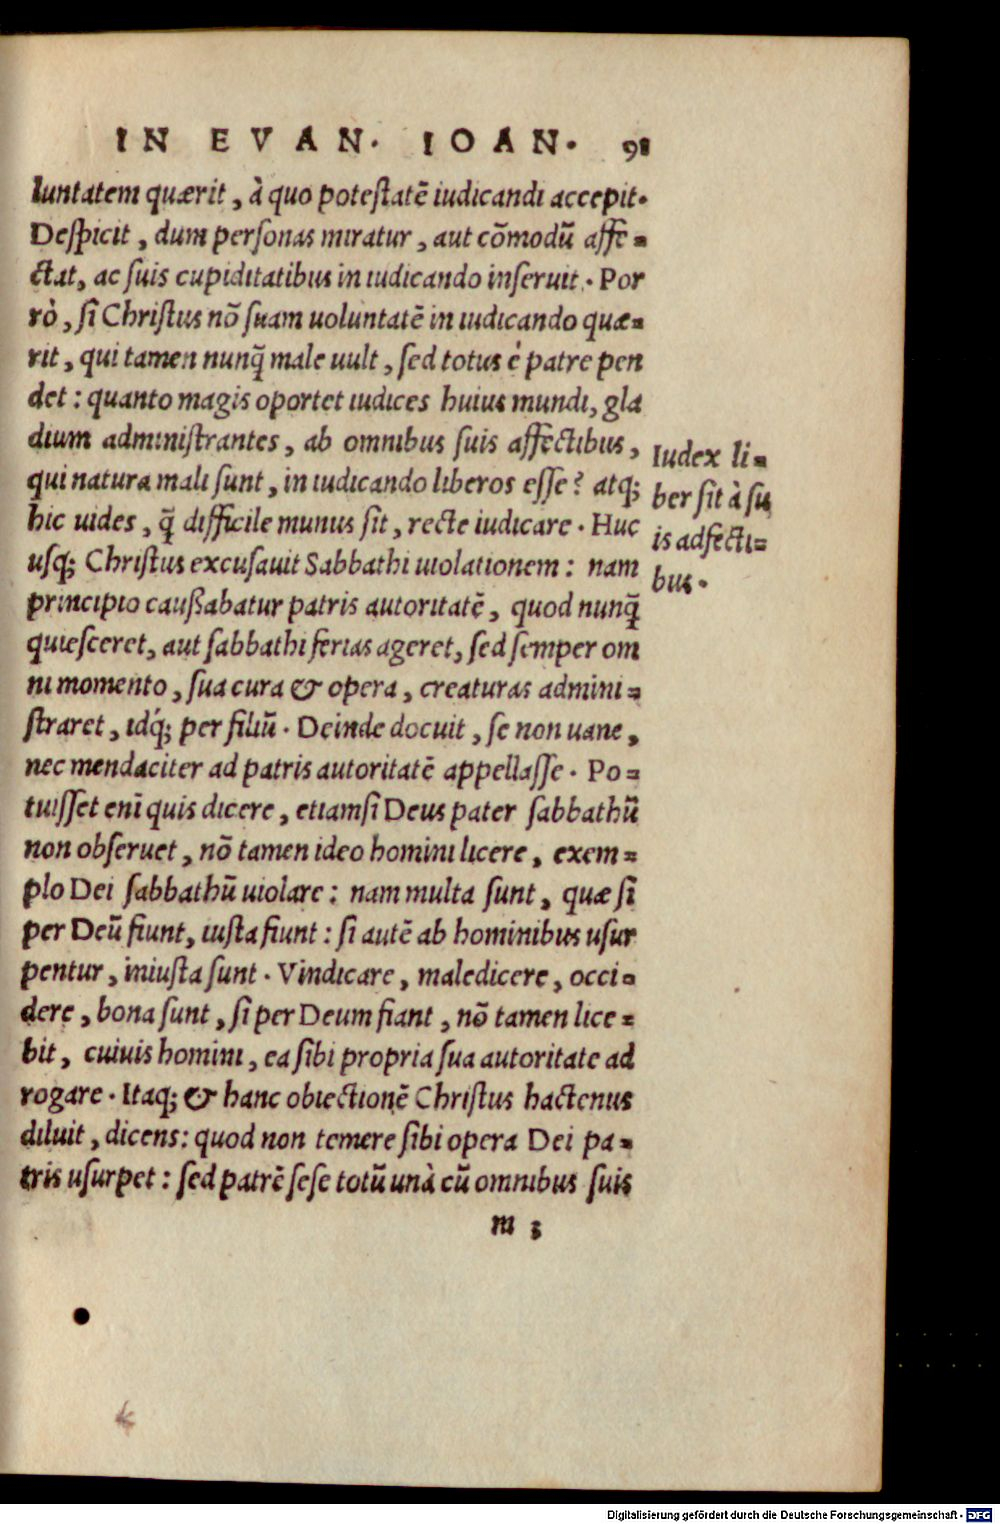 IN EVAN. IOAN. 91
luntatem quærit, à quo potestatē iudicandi accepit.
Despicit, dum personas miratur, aut cōmodū affe-
ctat, ac suis cupiditatibus in iudicando inseruit. Por
rò, si Christus nō suam uoluntatē in iudicando quæ-
rit, qui tamen nunq̃ male uult, sed totus è patre pen
det: quanto magis oportet iudices huius mundi, gla
dium administrantes, ab omnibus suis affectibus,
qui natura mali sunt, in iudicando liberos esse? atq;
hic uides, q̃ difficile munus sit, recte iudicare. Huc
usq; Christus excusauit Sabbathi uiolationem: nam
principio caußabatur patris autoritatē, quod nunq̃
quiesceret, aut sabbathi ferias ageret, sed semper om
ni momento, sua cura & opera, creaturas admini-
straret, idq́; per filiū. Deinde docuit, se non uane,
nec mendaciter ad patris autoritatē appellasse. Po-
tuisset enī quis dicere, etiamsi Deus pater sabbathū
non obseruet, nō tamen ideo homini licere, exem-
plo Dei sabbathū uiolare: nam multa sunt, quæ si
per Deū fiunt, iusta fiunt: si autē ab hominibus usur
pentur, iniusta sunt. Vindicare, maledicere, occi-
dere, bona sunt, si per Deum fiant, nō tamen lice-
bit, cuiuis homini, ea sibi propria sua autoritate ad
rogare. Itaq; & hanc obiectionē Christus hactenus
diluit, dicens: quod non temere sibi opera Dei pa-
tris usurpet: sed patrē sese totū unà cū omnibus suis
m 3
Iudex li-
ber sit à su
is adfecti-
bus.
Digitalisierung gefördert durch die Deutsche Forschungsgemeinschaft - DFG